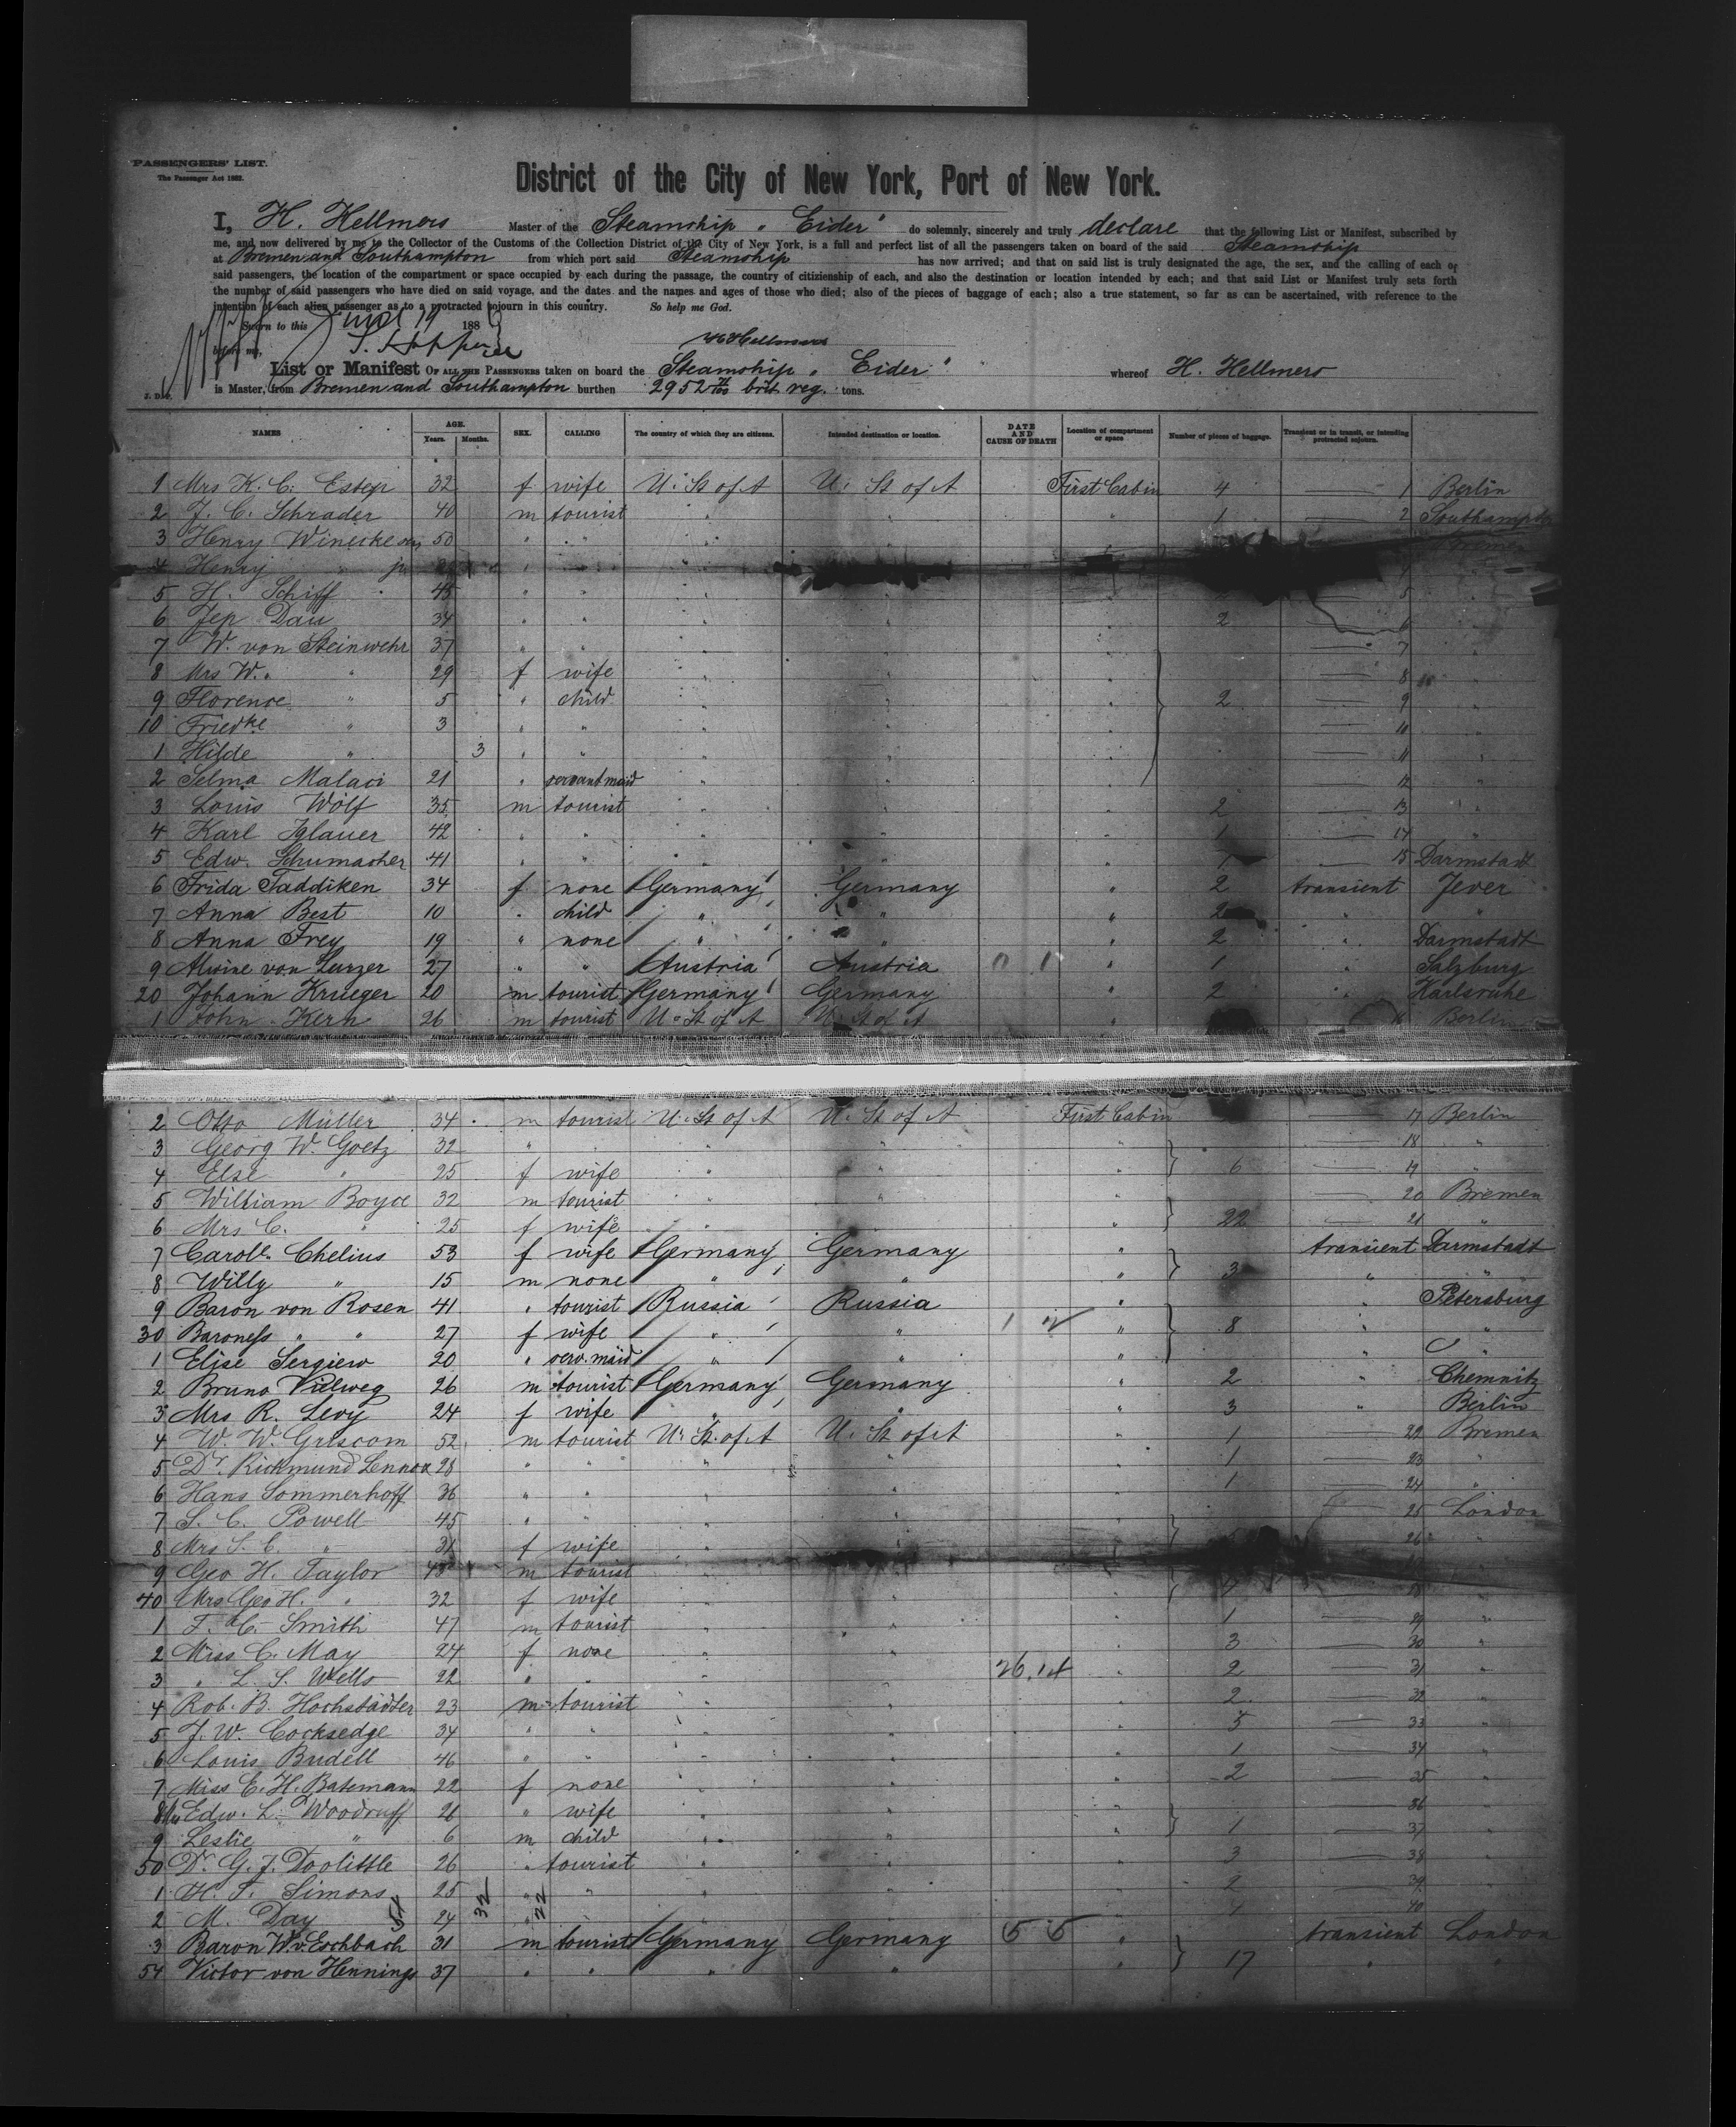 PASSENGERS' LIST.
The Passenger Act 1882.
District of the City of New York, Port of New York.
I, H. Hellmers Master of the Steamship "Eider" do solemnly, sincerely and truly declare that the following List or Manifest, subscribed by
me, and now delivered by me to the Collector of the Customs of the Collection District of the City of New York, is a full and perfect list of all the passengers taken on board of the said Steamship
at Bremen and Southampton from which port said Steamship has now arrived; and that on said list is truly designated the age, the sex, and the calling of each of
said passengers, the location of the compartment or space occupied by each during the passage, the country of citizenship of each, and also the destination or location intended by each; and that said List or Manifest truly sets forth
the number of said passengers who have died on said voyage, and the dates and the names and ages of those who died; also of the pieces of baggage of each; also a true statement, so far as can be ascertained, with reference to the
intention of each alien passenger as to a protracted sojourn in this country. So help me God.
Sworn to this 19 188
before me,
List or Manifest OF ALL THE PASSENGERS taken on board the Steamship "Eider" whereof H. Hellmers
is Master, from Bremen and Southampton burthen 2952 brit reg. tons.
NAMES AGE. Years. Months. SEX. CALLING The country of which they are citizens. Intended destination or location. DATE AND CAUSE OF DEATH Location of compartment or space Number of pieces of baggage. Transient or in transit, or intending protracted sojourn.
1 Mrs K. C. Estep 32 f wife U. St of A U. St of A First Cabin 4 — 1 Berlin
2 J. C. Schrader 40 m tourist " " " 1 — 2 Southampton
3 Henry Winecke sen 50 " " " " " Bremen
4 Henry " jr " " " "
5 H. Schiff 45 " " " " " 5 "
6 Jep Dau 34 " " " " " 2 6 "
7 W. von Steinwehr 37 " " " " " — 7 "
8 Mrs W. " 29 f wife " " " — 8 "
9 Florence " 5 " child " " " 2 — 9 "
10 Friedke " 3 " " " " " — 10 "
1 Hilde " 3 " " " " " — 11 "
2 Selma Malaci 21 " servant maid " " " — 12 "
3 Louis Wolf 35 m tourist " " " 2 — 13 "
4 Karl Iglauer 42 " " " " " 1 — 14 "
5 Edw. Schumacher 41 " " " " " 1 — 15 Darmstadt
6 Frida Taddiken 34 f none Germany Germany " 2 transient Jever
7 Anna Best 10 " child " " " 2 " "
8 Anna Frey 19 " none " " " 2 " Darmstadt
9 Alwine von Lurzer 27 " " Austria Austria 0 1 " 1 " Salzburg
20 Johann Krueger 20 m tourist Germany Germany " 2 " Karlsruhe
1 John Kern 26 m tourist U. St of A U. St of A " 16 Berlin
2 Otto Müller 34 m tourist U. St of A U. St of A First Cabin — 17 Berlin
3 Georg W. Goetz 32 " " " " " 18 "
4 Else " 25 f wife " " " 6 — 19 "
5 William Boyce 32 m tourist " " " — 20 Bremen
6 Mrs C. " 25 f wife " " " 22 — 21 "
7 Carole. Chelius 53 f wife Germany Germany " transient Darmstadt
8 Willy " 15 m none " " " 3 " "
9 Baron von Rosen 41 " tourist Russia Russia " " Petersburg
30 Baroness " " 27 f wife " " 1 " 8 " "
1 Elise Sergiew 20 " serv. maid " " " " "
2 Bruno Vielweg 26 m tourist Germany Germany " 2 " Chemnitz
3 Mrs R. Levy 24 f wife " " " 3 " Berlin
4 W. W. Griscom 52 m tourist U. St. of A U. St of A " 1 — 22 Bremen
5 Dr. Richmund Lennox 28 " " " " " 1 — 23 "
6 Hans Sommerhoff 36 " " " " " 1 — 24 "
7 S. C. Powell 45 " " " " " 25 London
8 Mrs S. C. " 31 f wife " " " 26 "
9 Geo H. Taylor 43 m tourist " " "
40 Mrs Geo H. " 32 f wife " " " 4 28 "
1 F. C. Smith 47 m tourist " " " 1 — 29 "
2 Miss C. May 24 f none " " " 3 — 30 "
3 " L. S. Wells 22 " " " " 26.14 " 2 — 31 "
4 Rob. B. Hochstädter 23 m tourist " " " 2 — 32 "
5 J. W. Cocksedge 34 " " " " " 5 — 33 "
6 Louis Budell 46 " " " " " 1 — 34 "
7 Miss E. H. Batemann 22 f none " " " 2 — 35 "
8 Mrs Edw. L. Woodruff 26 " wife " " " — 36 "
9 Leslie " 6 m child " " " 1 — 37 "
50 Dr. G. J. Doolittle 26 " tourist " " " 3 — 38 "
1 H. T. Simons 25 " " " " " 2 — 39 "
2 M. Day 24 " " " " " — 40 "
32 22
3 Baron W. v. Eschbach 31 m tourist Germany Germany 5 5 " transient London
54 Victor von Hennings 37 " " " " " 17 " "